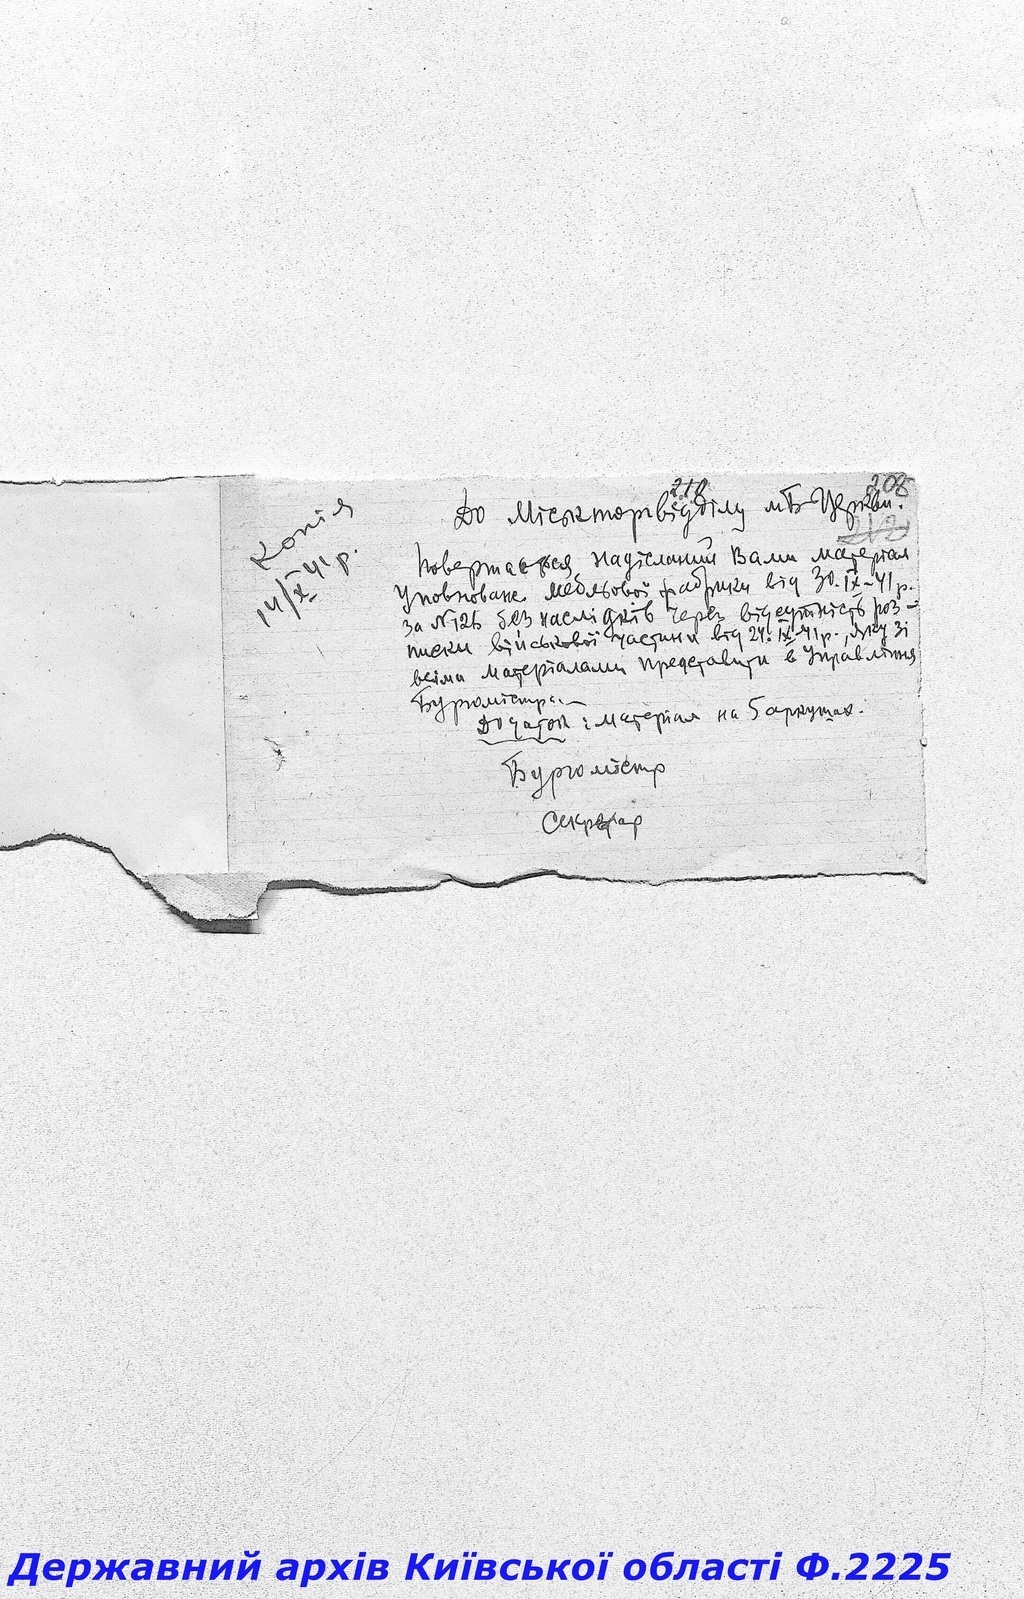 210
208
212
Копія
14/X 41 р.
До Міськторгвідділу м Б-Церкви.
Повертається надісланий Вами матеріал
Уповноваж. мебльової фабрики від 30.IX-41 р.
за № 126 без наслідків через відсутність роз-
писки військової частини від 24.IX-41 р., яку зі
всіма матеріалами представити в Управління
Бургомістра.
Додаток: матеріал на 5 аркушах.
Бургомістр
Секретар
Державний архів Київської області Ф.2225